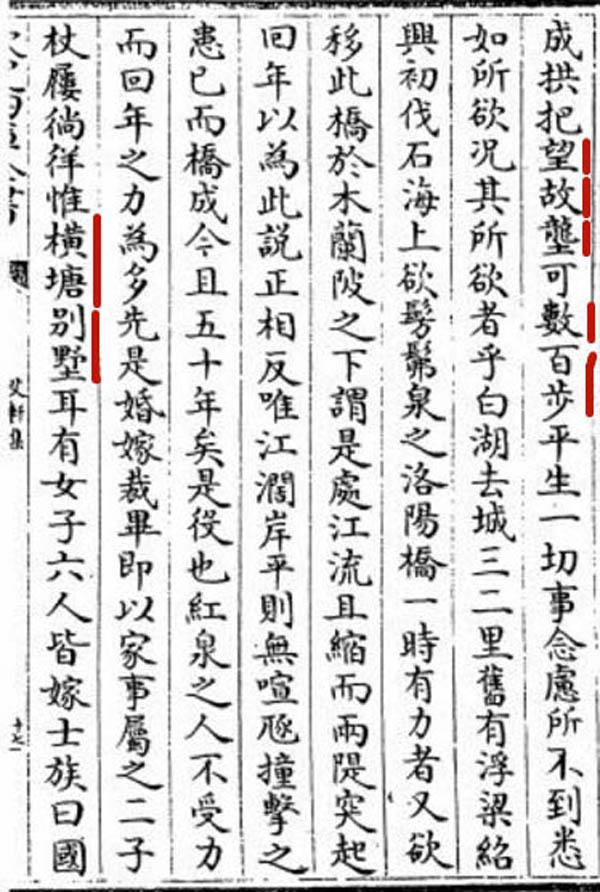 成拱把望故壟可數百步平生一切事念慮所不到悉
如所欲况其所欲者乎白湖去城三二里舊有浮梁紹
興初伐石海上欲髣髴泉之洛陽橋一時有力者又欲
移此橋於木蘭陂之下謂是處江流且縮而兩隄突起
回年以為此說正相反唯江濶岸平則無喧豗撞擊之
患已而橋成今且五十年矣是役也紅泉之人不受力
而回年之力為多先是婚嫁裁畢即以家事屬之二子
杖屨徜徉惟橫塘别墅耳有女子六人皆嫁士族曰國
艾軒集